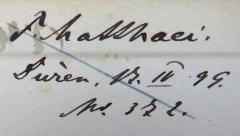 P. Matthaei.
Düren, 12. IV 99.
No. 372.